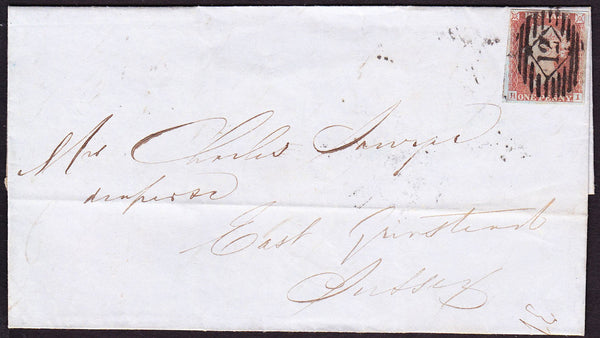 12
H ONE PENNY I
Mrs Charles Sawyer
draper &c
East Grinstead
Sussex